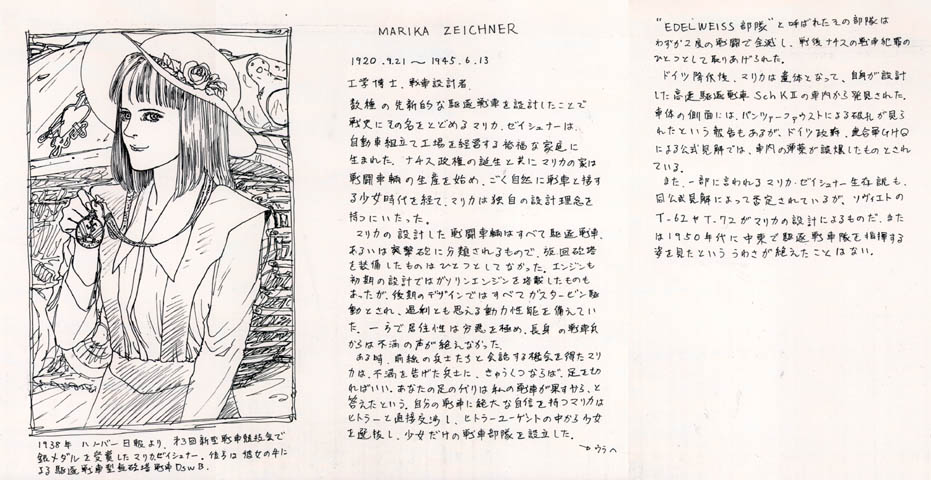 MARIKA ZEICHNER
1920.9.21 〜 1945.6.13
工学博士、戦車設計者.
数種の先新的な駆逐戦車を設計したことで
戦史にその名をとどめるマリカ.ゼイシュナーは、
自動車組立て工場を経営する裕福な家庭に
生まれた. ナチス政権の誕生と共にマリカの家は
戦闘車輌の生産を始め、ごく自然に戦車と接す
る少女時代を経て、マリカは独自の設計理念を
持つにいたった.
マリカの設計した戦闘車輌はすべて駆逐戦車、
あるいは突撃砲に分類されるもので、旋回砲塔
を装備したものはひとつとしてなかった. エンジンも
初期の設計ではガソリンエンジンを搭載したものも
あったが、後期のデザインではすべてガスタービン駆
動とされ、過剰とも思える動力性能を備えてい
た. 一方で居住性は劣悪を極め、長身の戦車兵
からは不満の声が絶えなかった.
ある時、前線の兵士たちと会談する機会を得たマリ
カは、不満を告げた兵士に、きゅうくつならば、足を切
ればいい. あなたの足の代りは私の戦車が果すから、と
答えたという. 自分の戦車に絶大な自信を持つマリカは
ヒトラーと直接交渉し、ヒトラーユーゲントの中から少女
を選抜し、少女だけの戦車部隊を設立した.
ウラへ
1938年 ハノーバー日報より、第3回新型戦車競技会で
銀メダルを受賞したマリカ.ゼイシュナー. 後ろは彼女の手に
よる駆逐戦車型無砲塔戦車DswB.
"EDELWEISS部隊"と呼ばれたその部隊は
わずか2度の戦闘で全滅し、戦後ナチスの戦車犯罪の
ひとつとして取りあげられた.
ドイツ降伏後、マリカは遺体となって、自身が設計
した高速駆逐戦車SchKⅡの車内から発見された.
車体の側面には、パンツァーファウストによる破孔が見ら
れたという報告もあるが、ドイツ政府、連合軍GHQ
による公式見解では、車内の弾薬が誤爆したものとされ
ている.
また、一部に言われるマリカ・ゼイシュナー生存説も、
同公式見解によって否定されているが、ソヴィエトの
T-62やT-72がマリカの設計によるものだ、また
は1950年代に中東で駆逐戦車隊を指揮する
姿を見たという うわさが絶えたことはない.